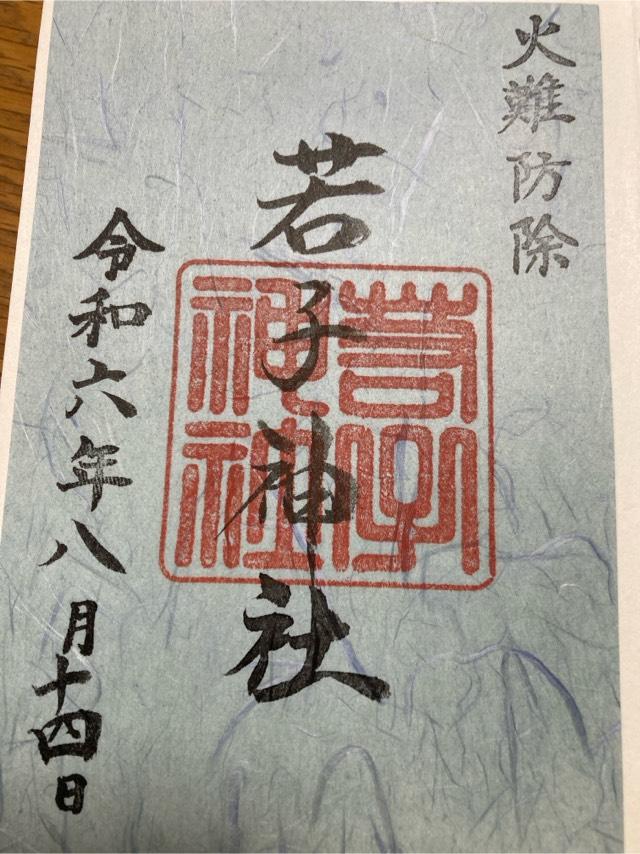 火難防除
若子神社
若子神社
令和六年八月十四日